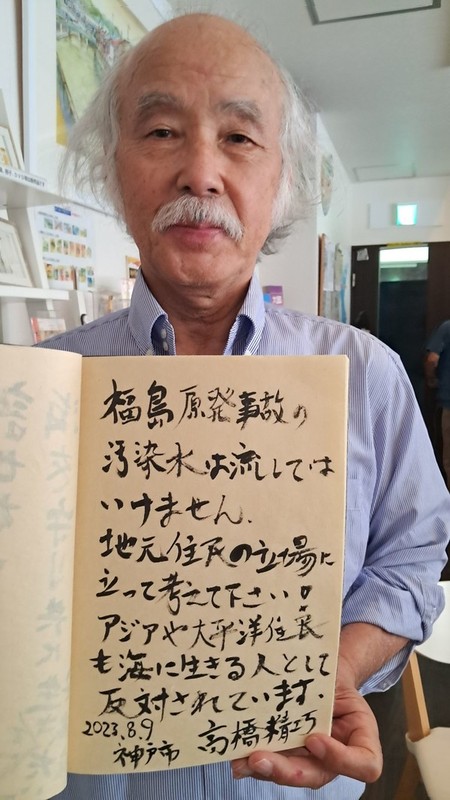 福島原発事故の
汚染水は流しては
いけません、
地元住民の立場に
立って考えて下さい!
アジアや太平洋住民
も海に生きる人として
反対されています.
2023.8.9
神戸市 高橋精巧